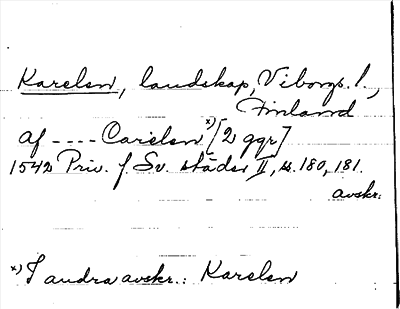 Karelen, landskap, Viborgs l.,
Finland
af ---- Carelen x) [2 ggr]
1542 Priv. f. Sv. städer II, s. 180, 181.
avskr.
x) I andra avskr.: Karelen